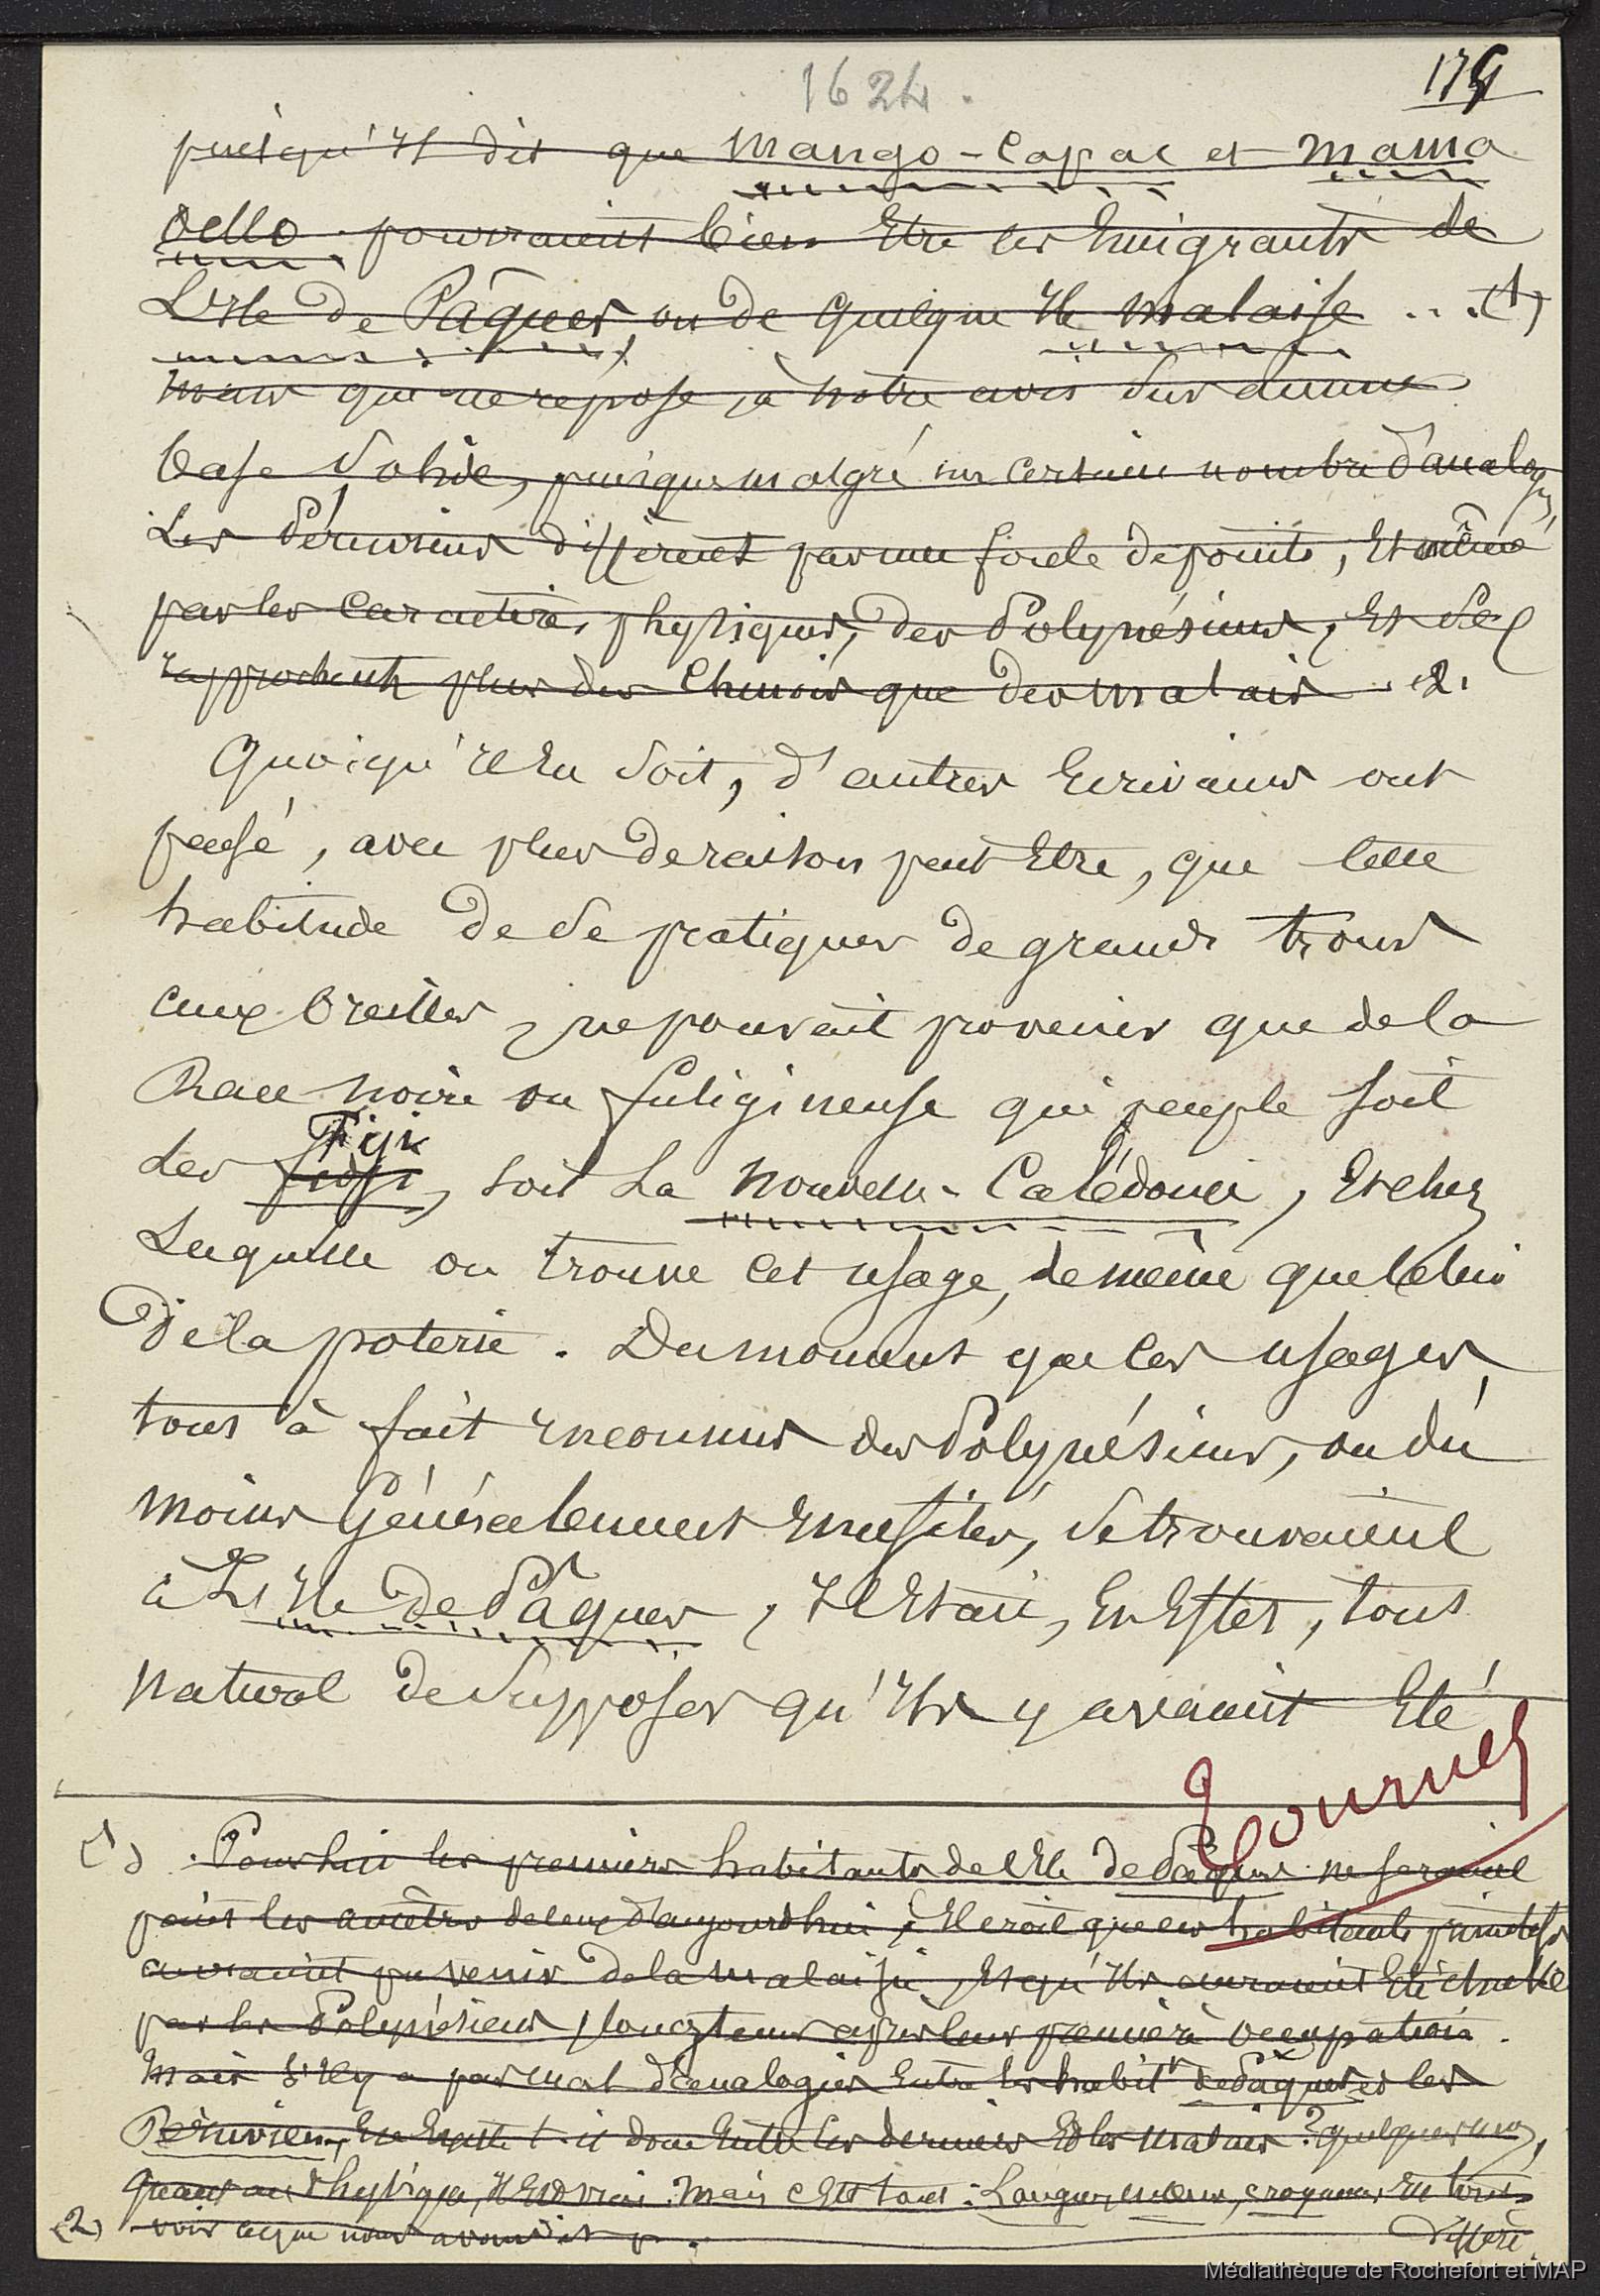 1624.
179
puisqu'il dit que Mango-Capac et Mama
Oello pourraient bien être les émigrants de
L'Ile de Pâques ou de quelque Ile Malaise ... (1)
mais qui ne repose, à notre avis sur aucune
base solide, puisque malgré un certain nombre d'analogies,
Les Péruviens diffèrent par une foule de points, et même
par les caractères physiques, des Polynésiens, et se
rapprochent plus des Chinois que des Malais . 2.
Quoiqu'il en soit, d'autres Ecrivains ont
pensé, avec plus de raison peut Etre, que cette
habitude de se pratiquer de grands trous
aux Oreilles, ne pouvait provenir que de la
Race noire ou fuligineuse qui peuple soit
Fiji
les fidji, soit La Nouvelle-Calédonie, Et chez
Laquelle on trouve cet usage, de même que Celui
de la poterie. Du moment que ces usages,
tout à fait inconnus des Polynésiens, ou du
moins Généralement inusités, se trouvaient
à L'Ile de Pâques, Il Etait, En Effet, tout
naturel de supposer qu'ils y avaient Eté
Tournez
(1) . Pour lui les premiers habitants de l'Ile de Pâques ne seraient
point les ancêtres de ceux d'aujourd'hui; Il croit que les habitants primitifs
auraient pu venir de la Malaisie, et qu'ils auraient Eté chassés
par les Polynésiens, longtems après leur première occupation.
Mais s'il y a pas mal d'analogies Entre les habitts de Pâques et les
Péruviens, En Existe t-il donc Entre les derniers Et les Malais? quelques unes,
quant au Physique, Il Est vrai. Mais c'Est tout: Langue, moeurs, croyances, En tout
diffère.
(2) voir ce que nous avons dit p. .
Médiathèque de Rochefort et MAP